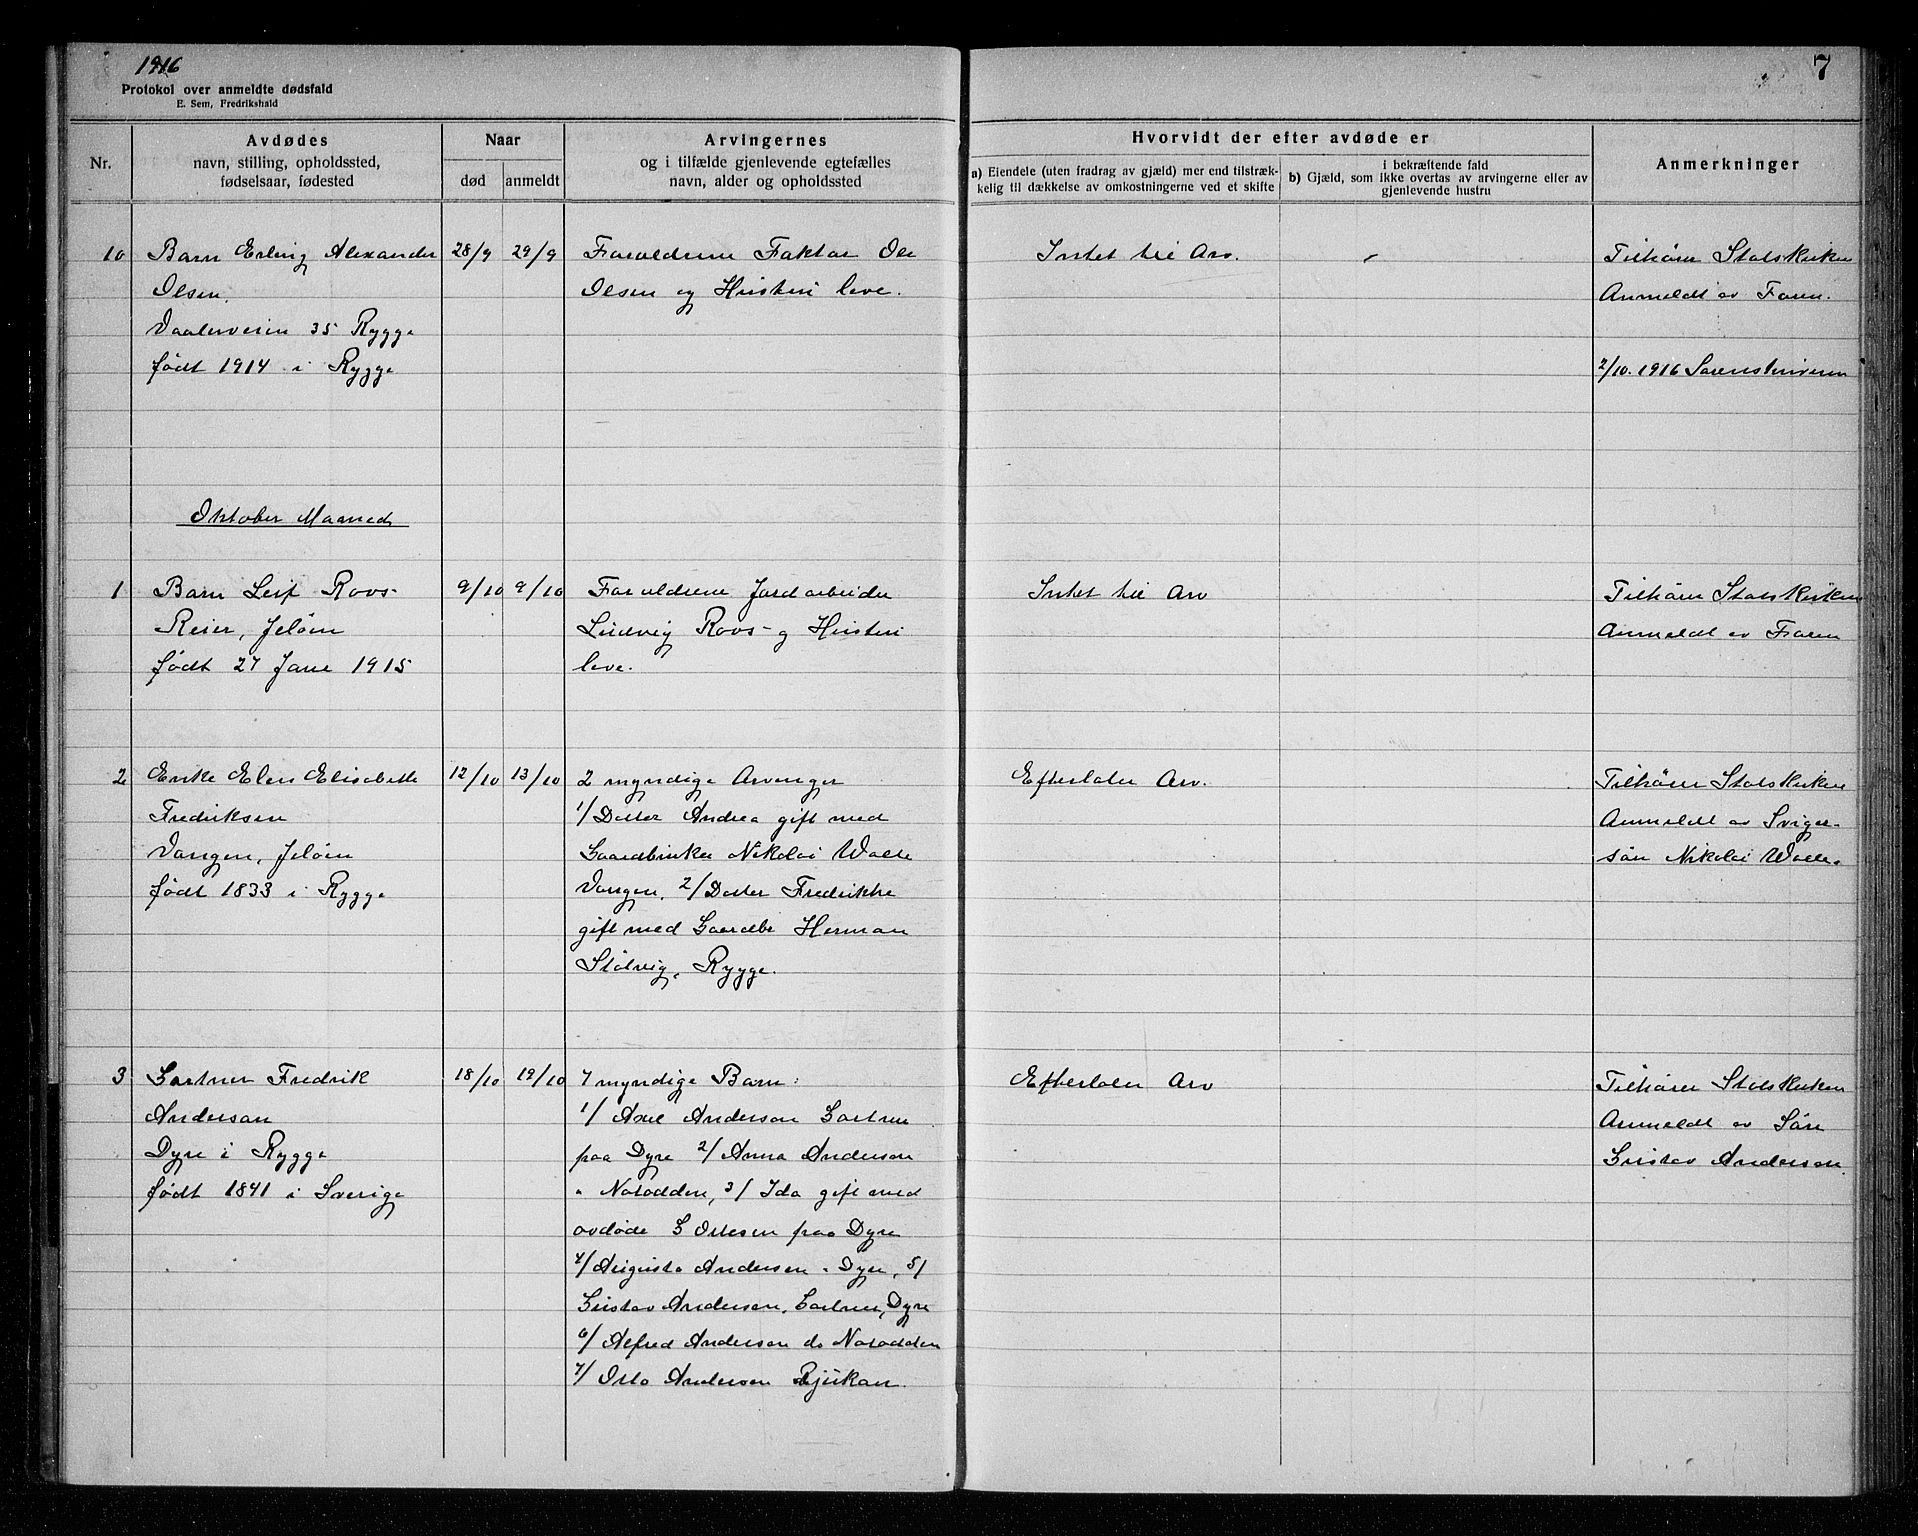 1916
7
Protokol over anmeldte dødsfald
E. Sem, Fredrikshald
Nr.
Avdødes
navn, stilling, opholdssted,
fødselsaar, fødested
Naar
død
anmeldt
Arvingernes
og i tilfælde gjenlevende egtefælles
navn, alder og opholdssted
Hvorvidt der efter avdøde er
a) Eiendele (uten fradrag av gjæld) mer end tilstræk-
kelig til dækkelse av omkostningerne ved et skifte
i bekræftende fald
b) Gjæld, som ikke overtas av arvingerne eller av
gjenlevende hustru
Anmerkninger
10
Barn Erling Alexander
Olsen.
Vaalerveien 35 Rygge
født 1914 i Rygge
28/9
29/9
Forældrene Faktor Ole
Olsen og Hustru leve.
Intet til Arv.
Tilhører Statskirken
Anmeldt av Faren.
2/10. 1916 Sorenskriveren
Oktober Maaned
1
Barn Leif Roos-
Reier, Jeløen
født 27 Jane 1915
9/10
9/10
Forældrene Jordarbeider
Ludvig Roos- og Hustru
leve.
Intet til Arv
Tilhører Statskirken
Anmeldt av Faren
2
Enke Elen Elisabeth
Fredriksen
Vangen, Jeløen
født 1833 i Rygge
12/10
13/10
2 myndige Arvinger
1/ Datter Andrea gift med
Gaardbruker Nikolai Walle
Vangen, 2/ Datter Fredrikke
gift med Gaardbr Herman
Støtvig, Rygge.
Efterlater Arv.
Tilhører Statskirken
Anmeldt av Sviger-
søn Nikolai Walle
3
Gartner Fredrik
Anderson
Dyre i Rygge
født 1841 i Sverige
18/10
19/10
7 myndige Barn:
1/ Axel Anderson Gartner
paa Dyre 2/ Anna Anderson
" Notodden, 3/ Ida gift med
avdøde G Ottesen paa Dyre
4/ Augusta Andersen " Dyre, 5/
Gustav Andersen, Gartner, Dyre
6/ Alfred Andersen do Notodden
7/ Otto Andersen Rjukan.
Efterlater Arv
Tilhører Statskirken
Anmeldt av Søn
Gustav Andersen.